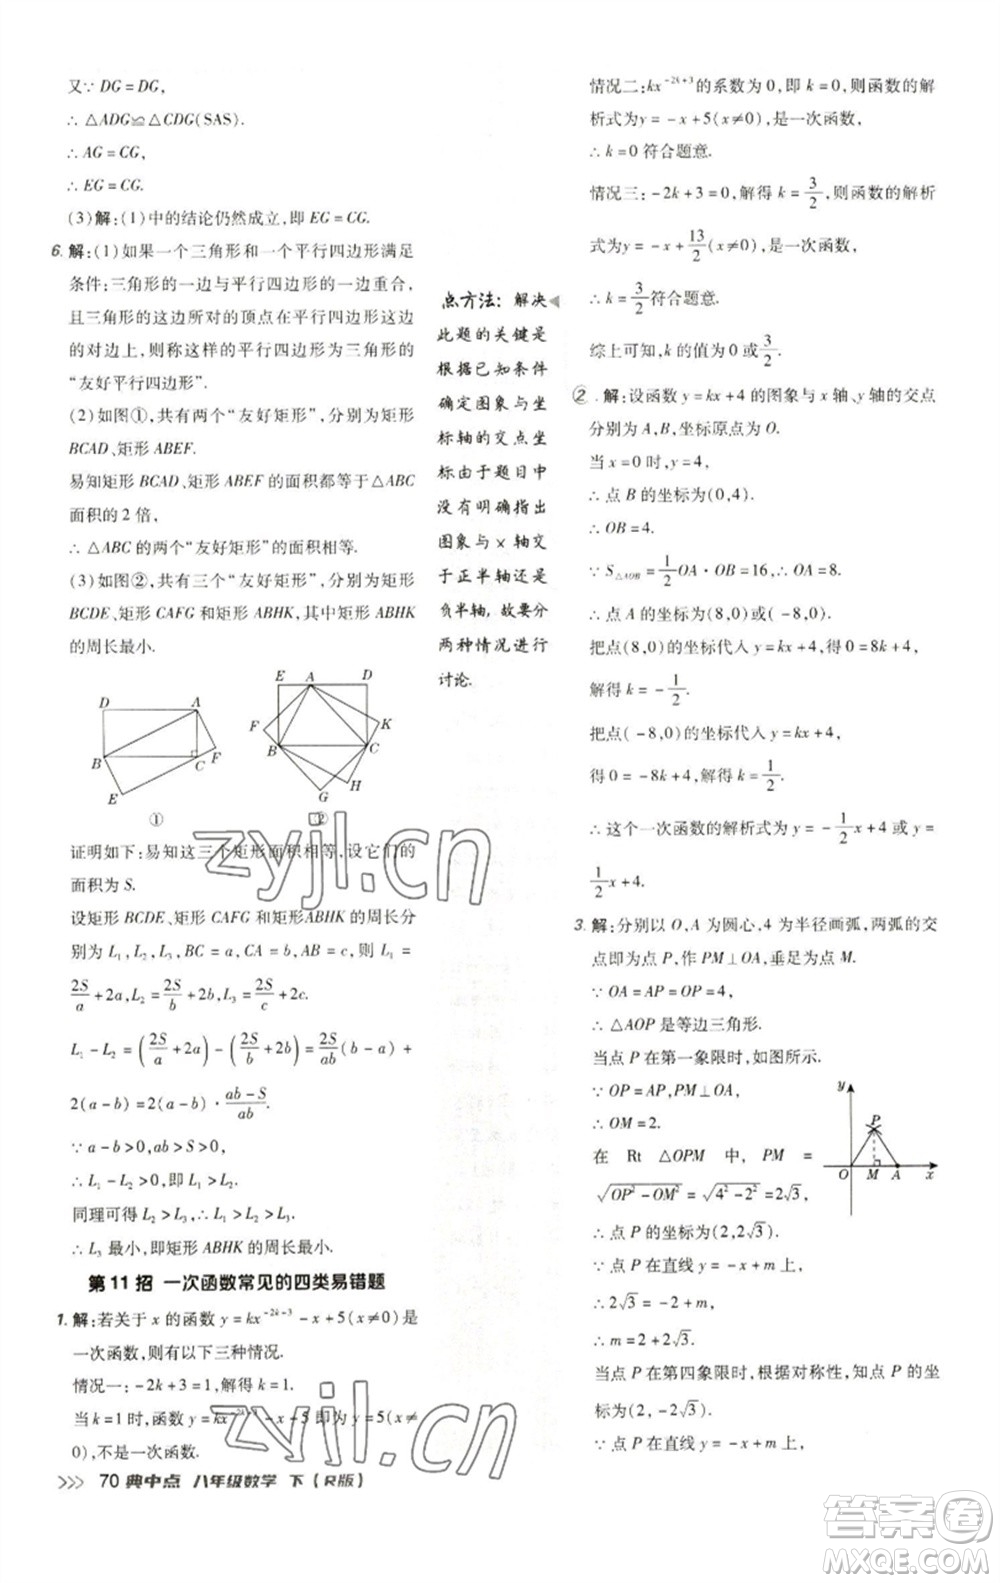 又∵ DG = DG,
∴ △ADG≌△CDG(SAS).
∴ AG = CG,
∴ EG = CG.
(3)解:(1)中的结论仍然成立,即 EG = CG.
6. 解:(1)如果一个三角形和一个平行四边形满足
条件:三角形的一边与平行四边形的一边重合,
且三角形的这边所对的顶点在平行四边形这边
的对边上,则称这样的平行四边形为三角形的
“友好平行四边形”.
(2)如图①,共有两个“友好矩形”,分别为矩形
BCAD、矩形 ABEF.
易知矩形 BCAD、矩形 ABEF 的面积都等于△ABC
面积的 2 倍,
∴ △ABC 的两个“友好矩形”的面积相等.
(3)如图②,共有三个“友好矩形”,分别为矩形
BCDE、矩形 CAFG 和矩形 ABHK,其中矩形 ABHK
的周长最小.
D A B C F E
①
E A D F K B C H G
②
证明如下:易知这三个矩形面积相等,设它们的
面积为 S.
设矩形 BCDE、矩形 CAFG 和矩形ABHK 的周长分
别为 L₁,L₂,L₃,BC = a,CA = b,AB = c,则 L₁ =
2S/a + 2a,L₂ = 2S/b + 2b,L₃ = 2S/c + 2c.
L₁ − L₂ = (2S/a + 2a) − (2S/b + 2b) = 2S/ab (b − a) +
2(a − b) = 2(a − b) · (ab − S)/ab.
∵ a − b > 0,ab > S,
∴ L₁ − L₂ > 0,∴ L₁ > L₂.
同理可得 L₂ > L₃,∴ L₁ > L₂ > L₃.
∴ L₃ 最小,即矩形 ABHK 的周长最小.
第 11 招 一次函数常见的四类易错题
1. 解:若关于 x 的函数 y = kx⁻²ᵏ⁺³ − x + 5(x≠0)是
一次函数,则有以下三种情况.
情况一: −2k + 3 = 1,解得 k = 1.
当 k = 1 时,函数 y = kx⁻²ᵏ⁺³ − x + 5 即为 y = 5(x≠
0),不是一次函数.
点方法:解决
此题的关键是
根据已知条件
确定图象与坐
标轴的交点坐
标由于题目中
没有明确指出
图象与 x 轴交
于正半轴还是
负半轴,故要分
两种情况进行
讨论.
情况二:kx⁻²ᵏ⁺³的系数为 0,即 k = 0,则函数的解
析式为 y = −x + 5(x≠0),是一次函数,
∴ k = 0 符合题意.
情况三: −2k + 3 = 0,解得 k = 3/2,则函数的解析
式为 y = −x + 13/2 (x≠0),是一次函数,
∴ k = 3/2 符合题意.
综上可知,k 的值为 0 或 3/2.
2. 解:设函数 y = kx + 4 的图象与 x 轴、y 轴的交点
分别为 A,B,坐标原点为 O.
当 x = 0 时,y = 4,
∴ 点 B 的坐标为(0,4).
∴ OB = 4.
∵ S△AOB = 1/2 OA · OB = 16,∴ OA = 8.
∴ 点 A 的坐标为(8,0)或( −8,0).
把点(8,0)的坐标代入 y = kx + 4,得 0 = 8k + 4,
解得 k = − 1/2.
把点( −8,0)的坐标代入 y = kx + 4,
得 0 = −8k + 4,解得 k = 1/2.
∴ 这个一次函数的解析式为 y = − 1/2 x + 4 或 y =
1/2 x + 4.
3. 解:分别以 O,A 为圆心,4 为半径画弧,两弧的交
点即为点 P,作 PM⊥OA,垂足为点 M.
∵ OA = AP = OP = 4,
∴ △AOP 是等边三角形.
当点 P 在第一象限时,如图所示.
∵ OP = AP,PM⊥OA,
∴ OM = 2.
在 Rt △OPM 中, PM =
√(OP² − OM²) = √(4² − 2²) = 2√3,
y P O M A x
∴ 点 P 的坐标为(2,2√3).
∵ 点 P 在直线 y = −x + m 上,
∴ 2√3 = −2 + m,
∴ m = 2 + 2√3.
当点 P 在第四象限时,根据对称性,知点 P 的坐
标为(2, −2√3).
∵ 点 P 在直线 y = −x + m 上,
70 典中点 八年级数学 下(R版)
zyjl.cn
zyjl.cn
答案圈
MXQE.COM